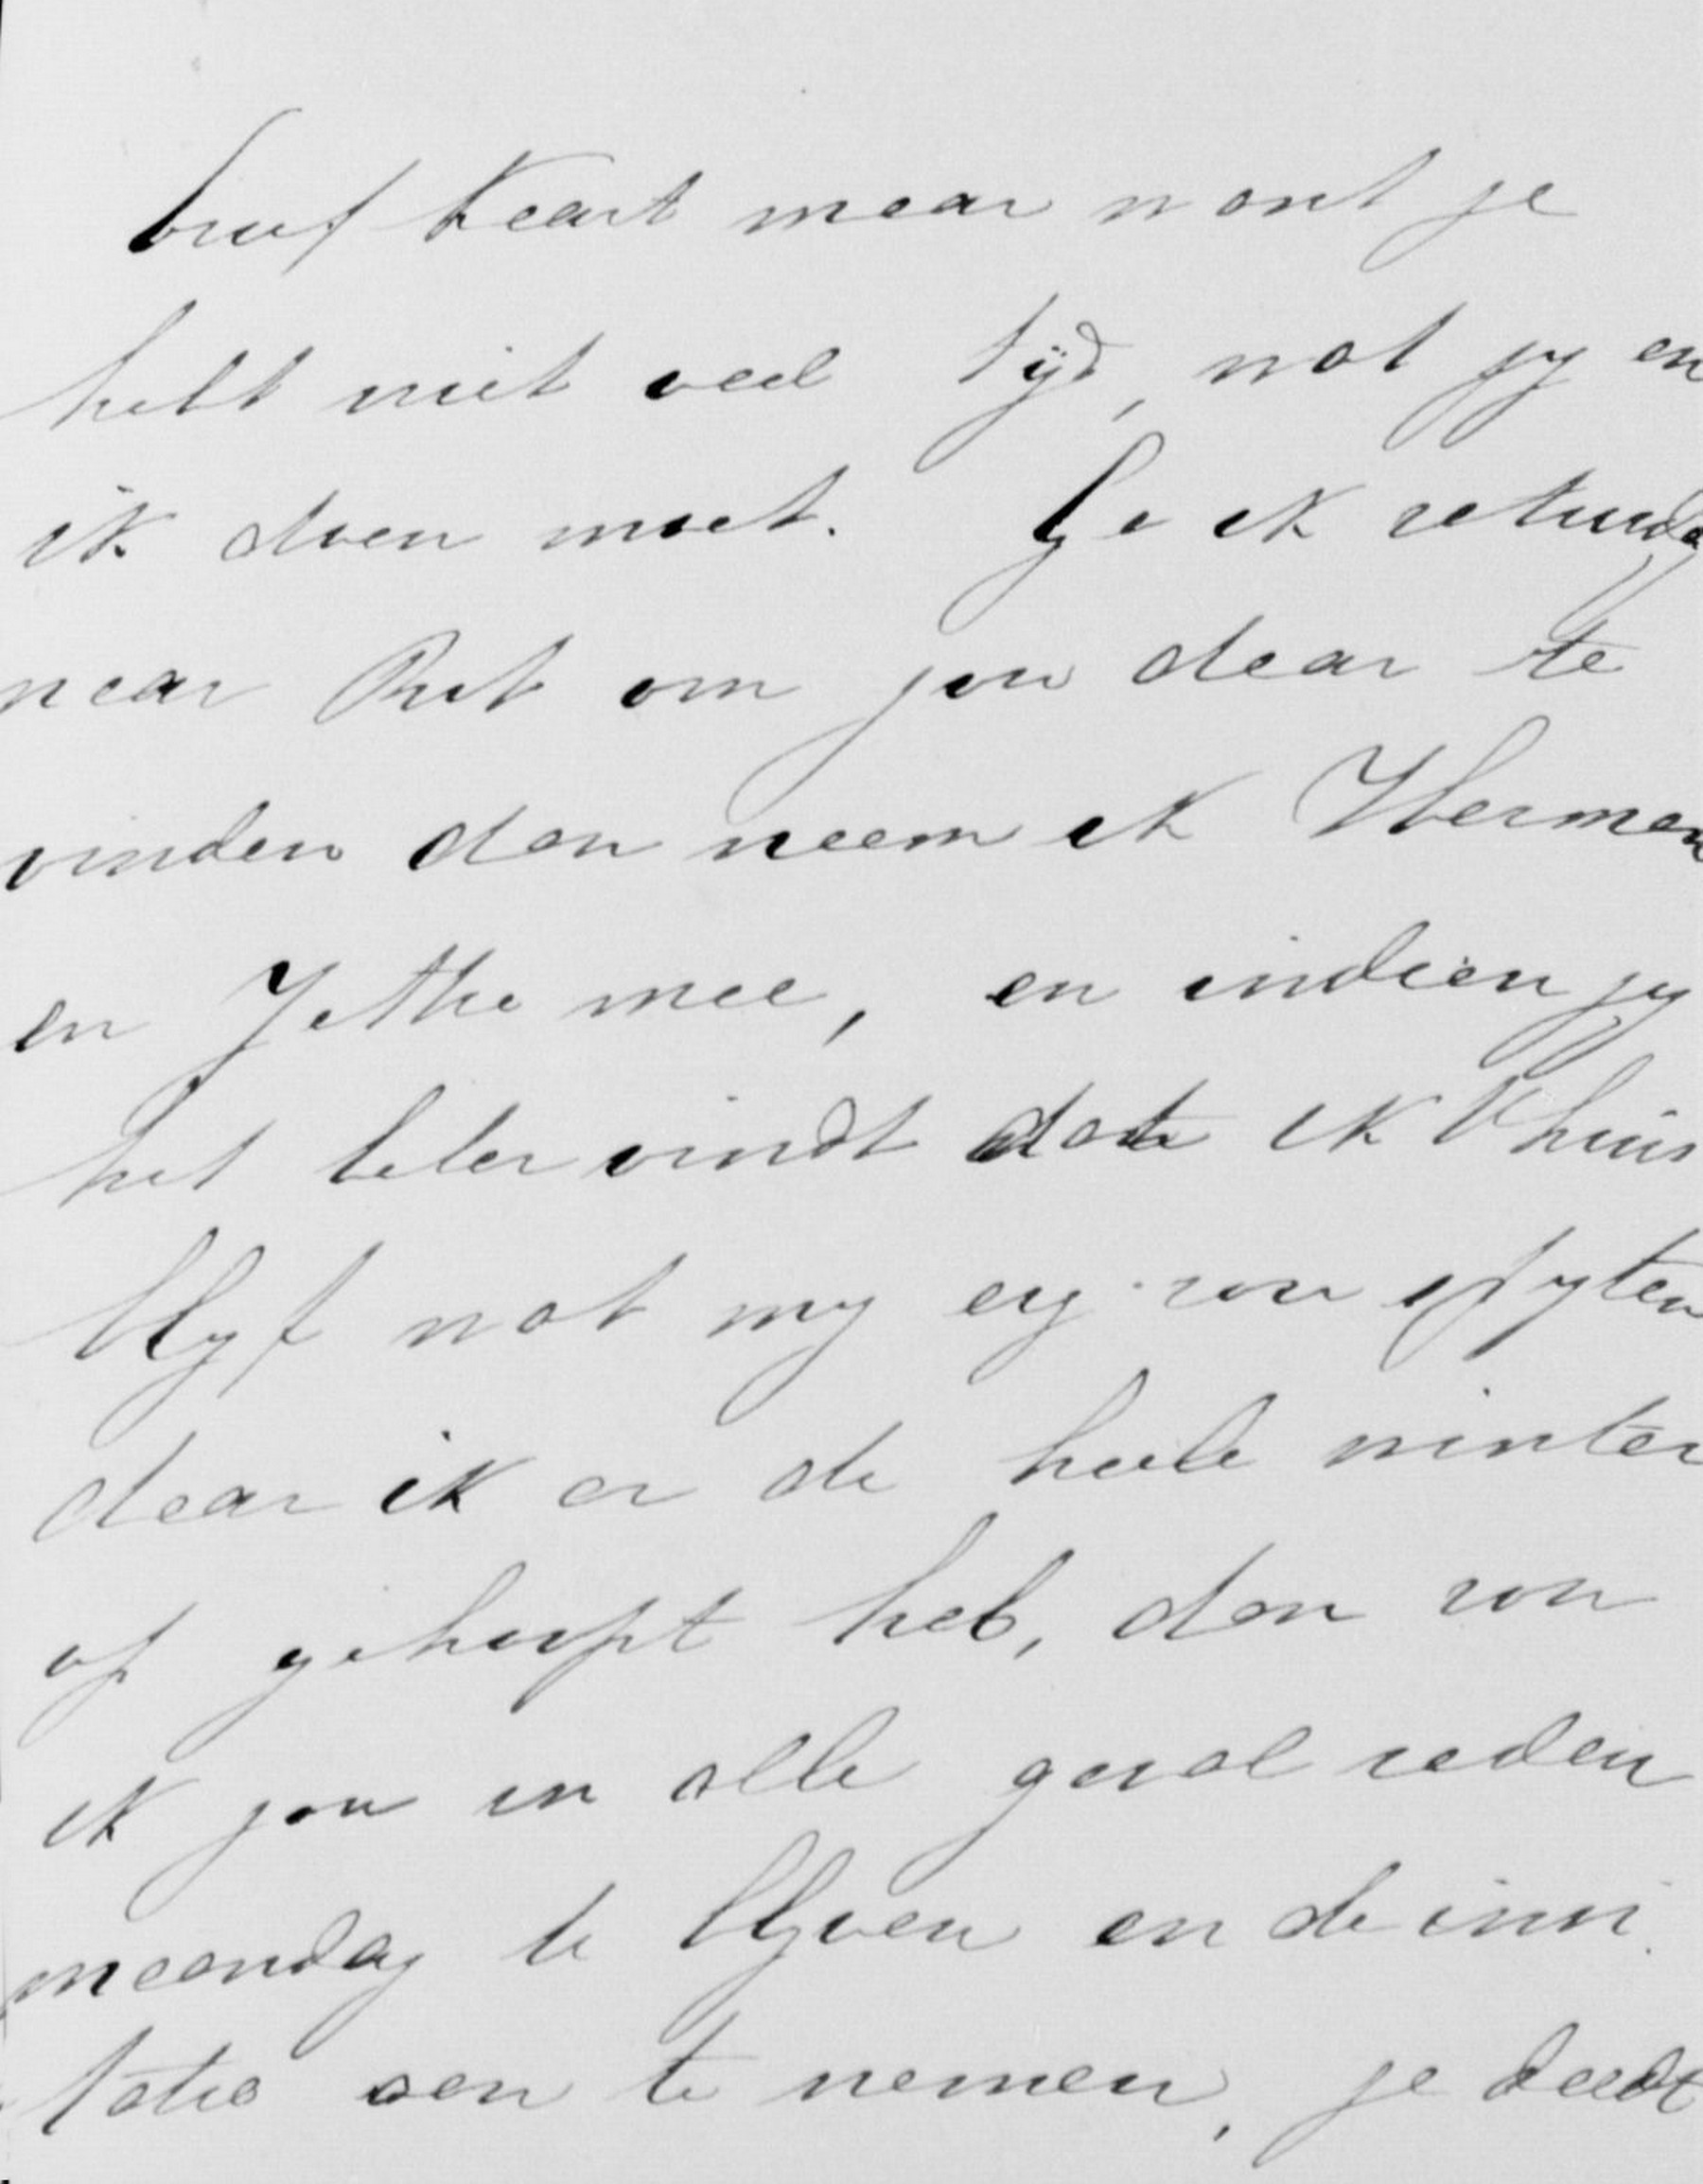 brief kaart maar want je
hebt niet veel tijd, wat jy en
ik doen moet. Ga ik zaturdag
naar Rib om jou daar te
vinden dan neem ik Herman
en Jethe mee, en indien jy
het beter vindt dat ik thuis
blyf wat my erg zou spyten
daar ik er de heele winter
op gehoopt heb, dan zou
ik jou in alle geval raden
maandag te blyven en de invi
tatie aan te nemen, je deedt